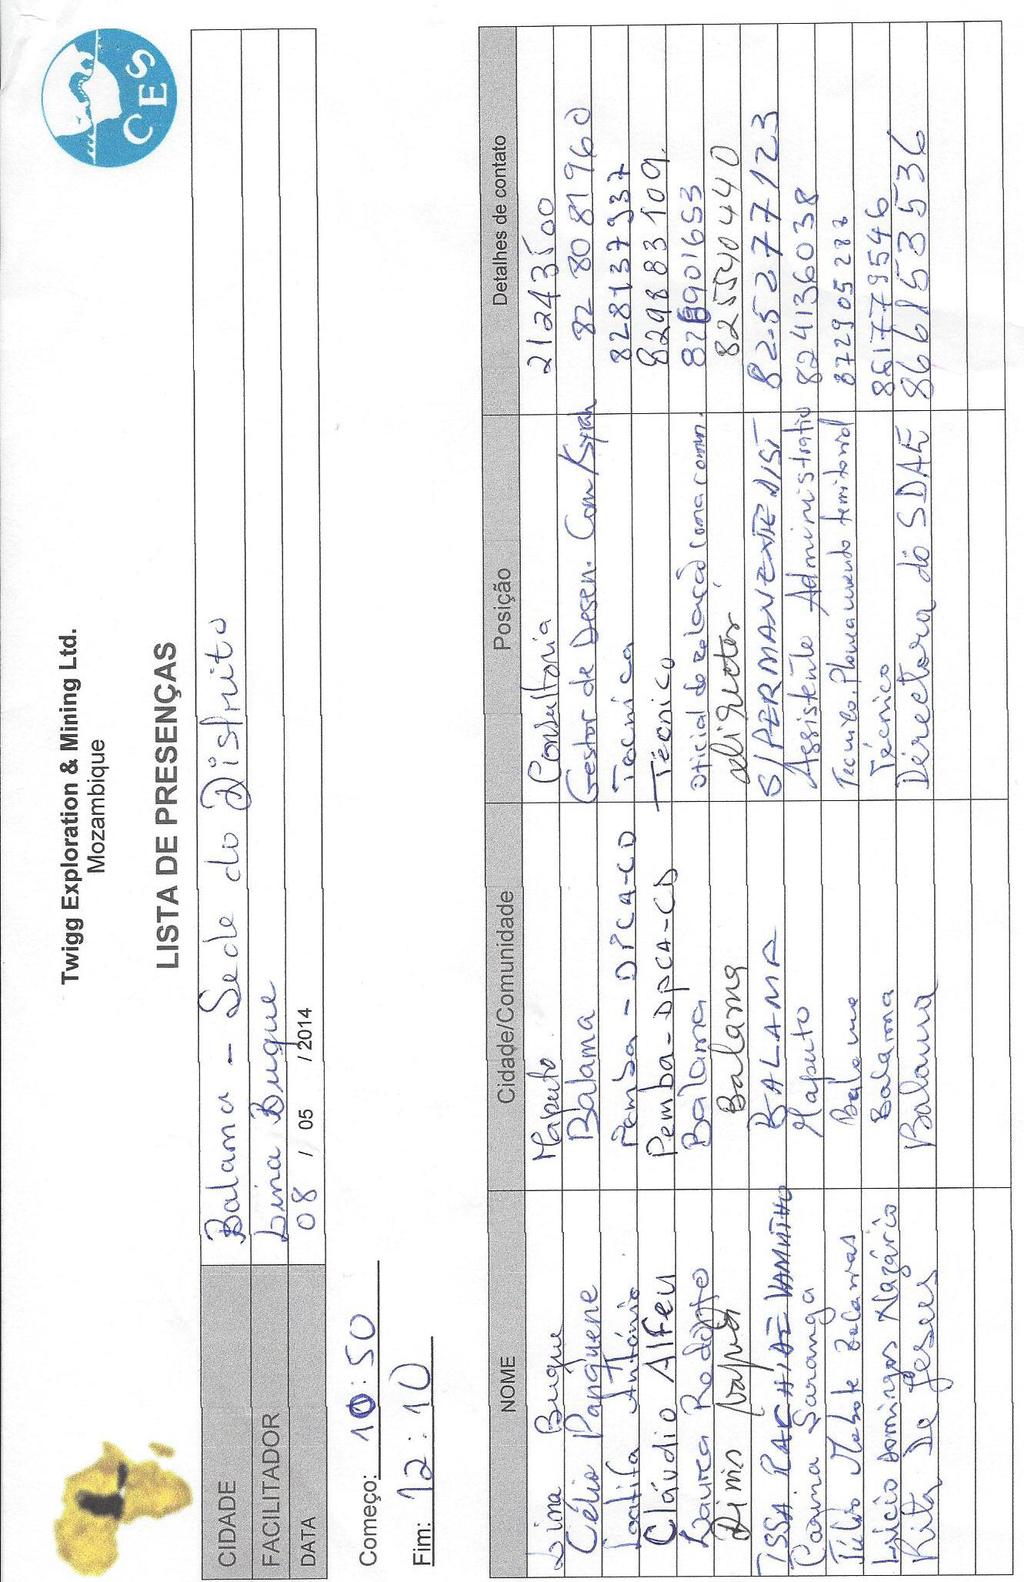 Twigg Exploration & Mining Ltd.
Mozambique
CES
LISTA DE PRESENÇAS
CIDADE Balama - Sede do Distrito
FACILITADOR Lina Buque
DATA 08 / 05 / 2014
Começo: 10:50
Fim: 12:10
NOME Cidade/Comunidade Posição Detalhes de contato
Lina Buque Maputo Consultoria 21243500
Célio Panquene Balama Gestor de Desen. Com/Syrah 82 80 81960
Latifa António Pemba - DPCA-CD Técnica 828137937
Cláudio Alfeu Pemba-DPCA-CD Técnico 829883109.
Laura Rodolfo Balama Oficial de relação com a comun. 826901653
Dinis Balama director 825540440
ISSA BALAMA S/PERMANENTE DIST 825277123
Saranga Maputo Assistente Administrativo 824136038
Júlio Balama Tecnico. Planeamento territorial 872905287
Lúcio Domingos Nazário Balama Técnico 861779546
Rita De Jesus Balama Directora do SDAE 866153536